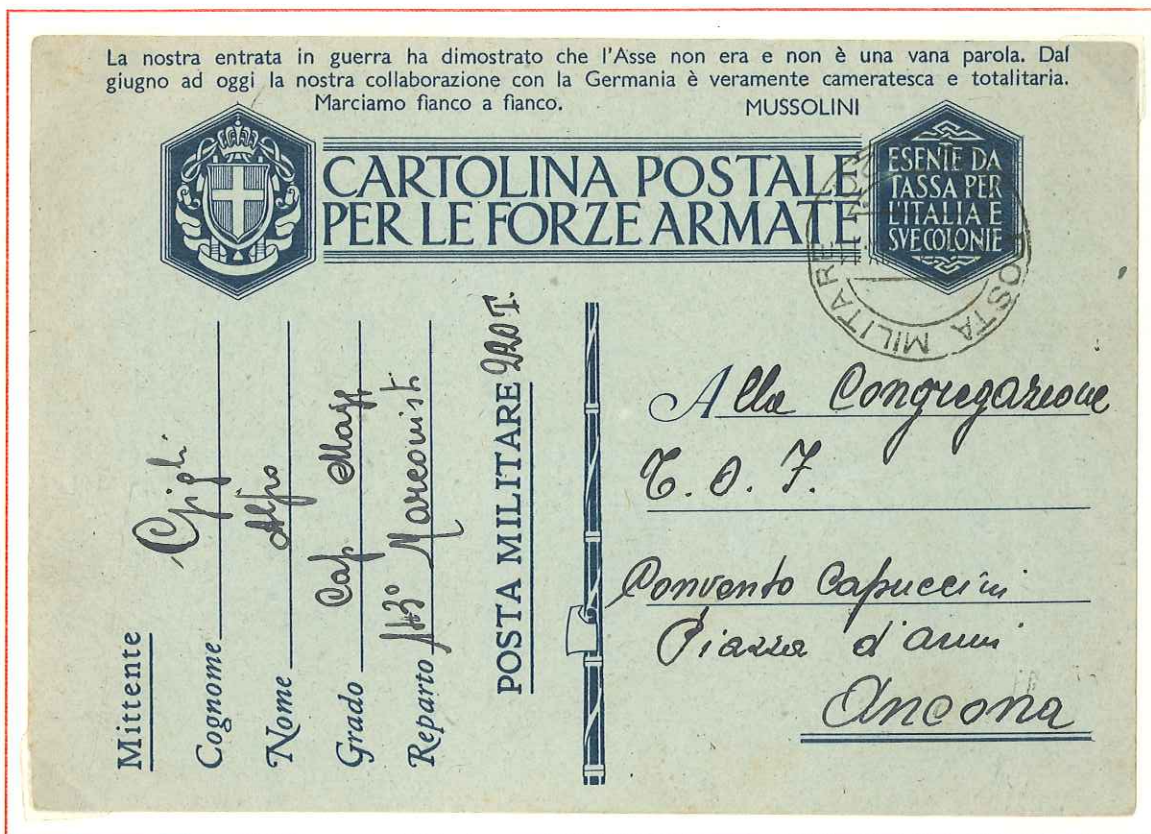 La nostra entrata in guerra ha dimostrato che l'Asse non era e non è una vana parola. Dal
giugno ad oggi la nostra collaborazione con la Germania è veramente cameratesca e totalitaria.
Marciamo fianco a fianco. MUSSOLINI
CARTOLINA POSTALE
PER LE FORZE ARMATE
ESENTE DA
TASSA PER
L'ITALIA E
SVE COLONIE
POSTA MILITARE
Mittente
Cognome Gigli
Nome Alfio
Grado Cap Magg
Reparto Marconisti
POSTA MILITARE 220 T.
Alla Congregazione
T. O. F.
Convento Capuccini
Piazza d'armi
Ancona